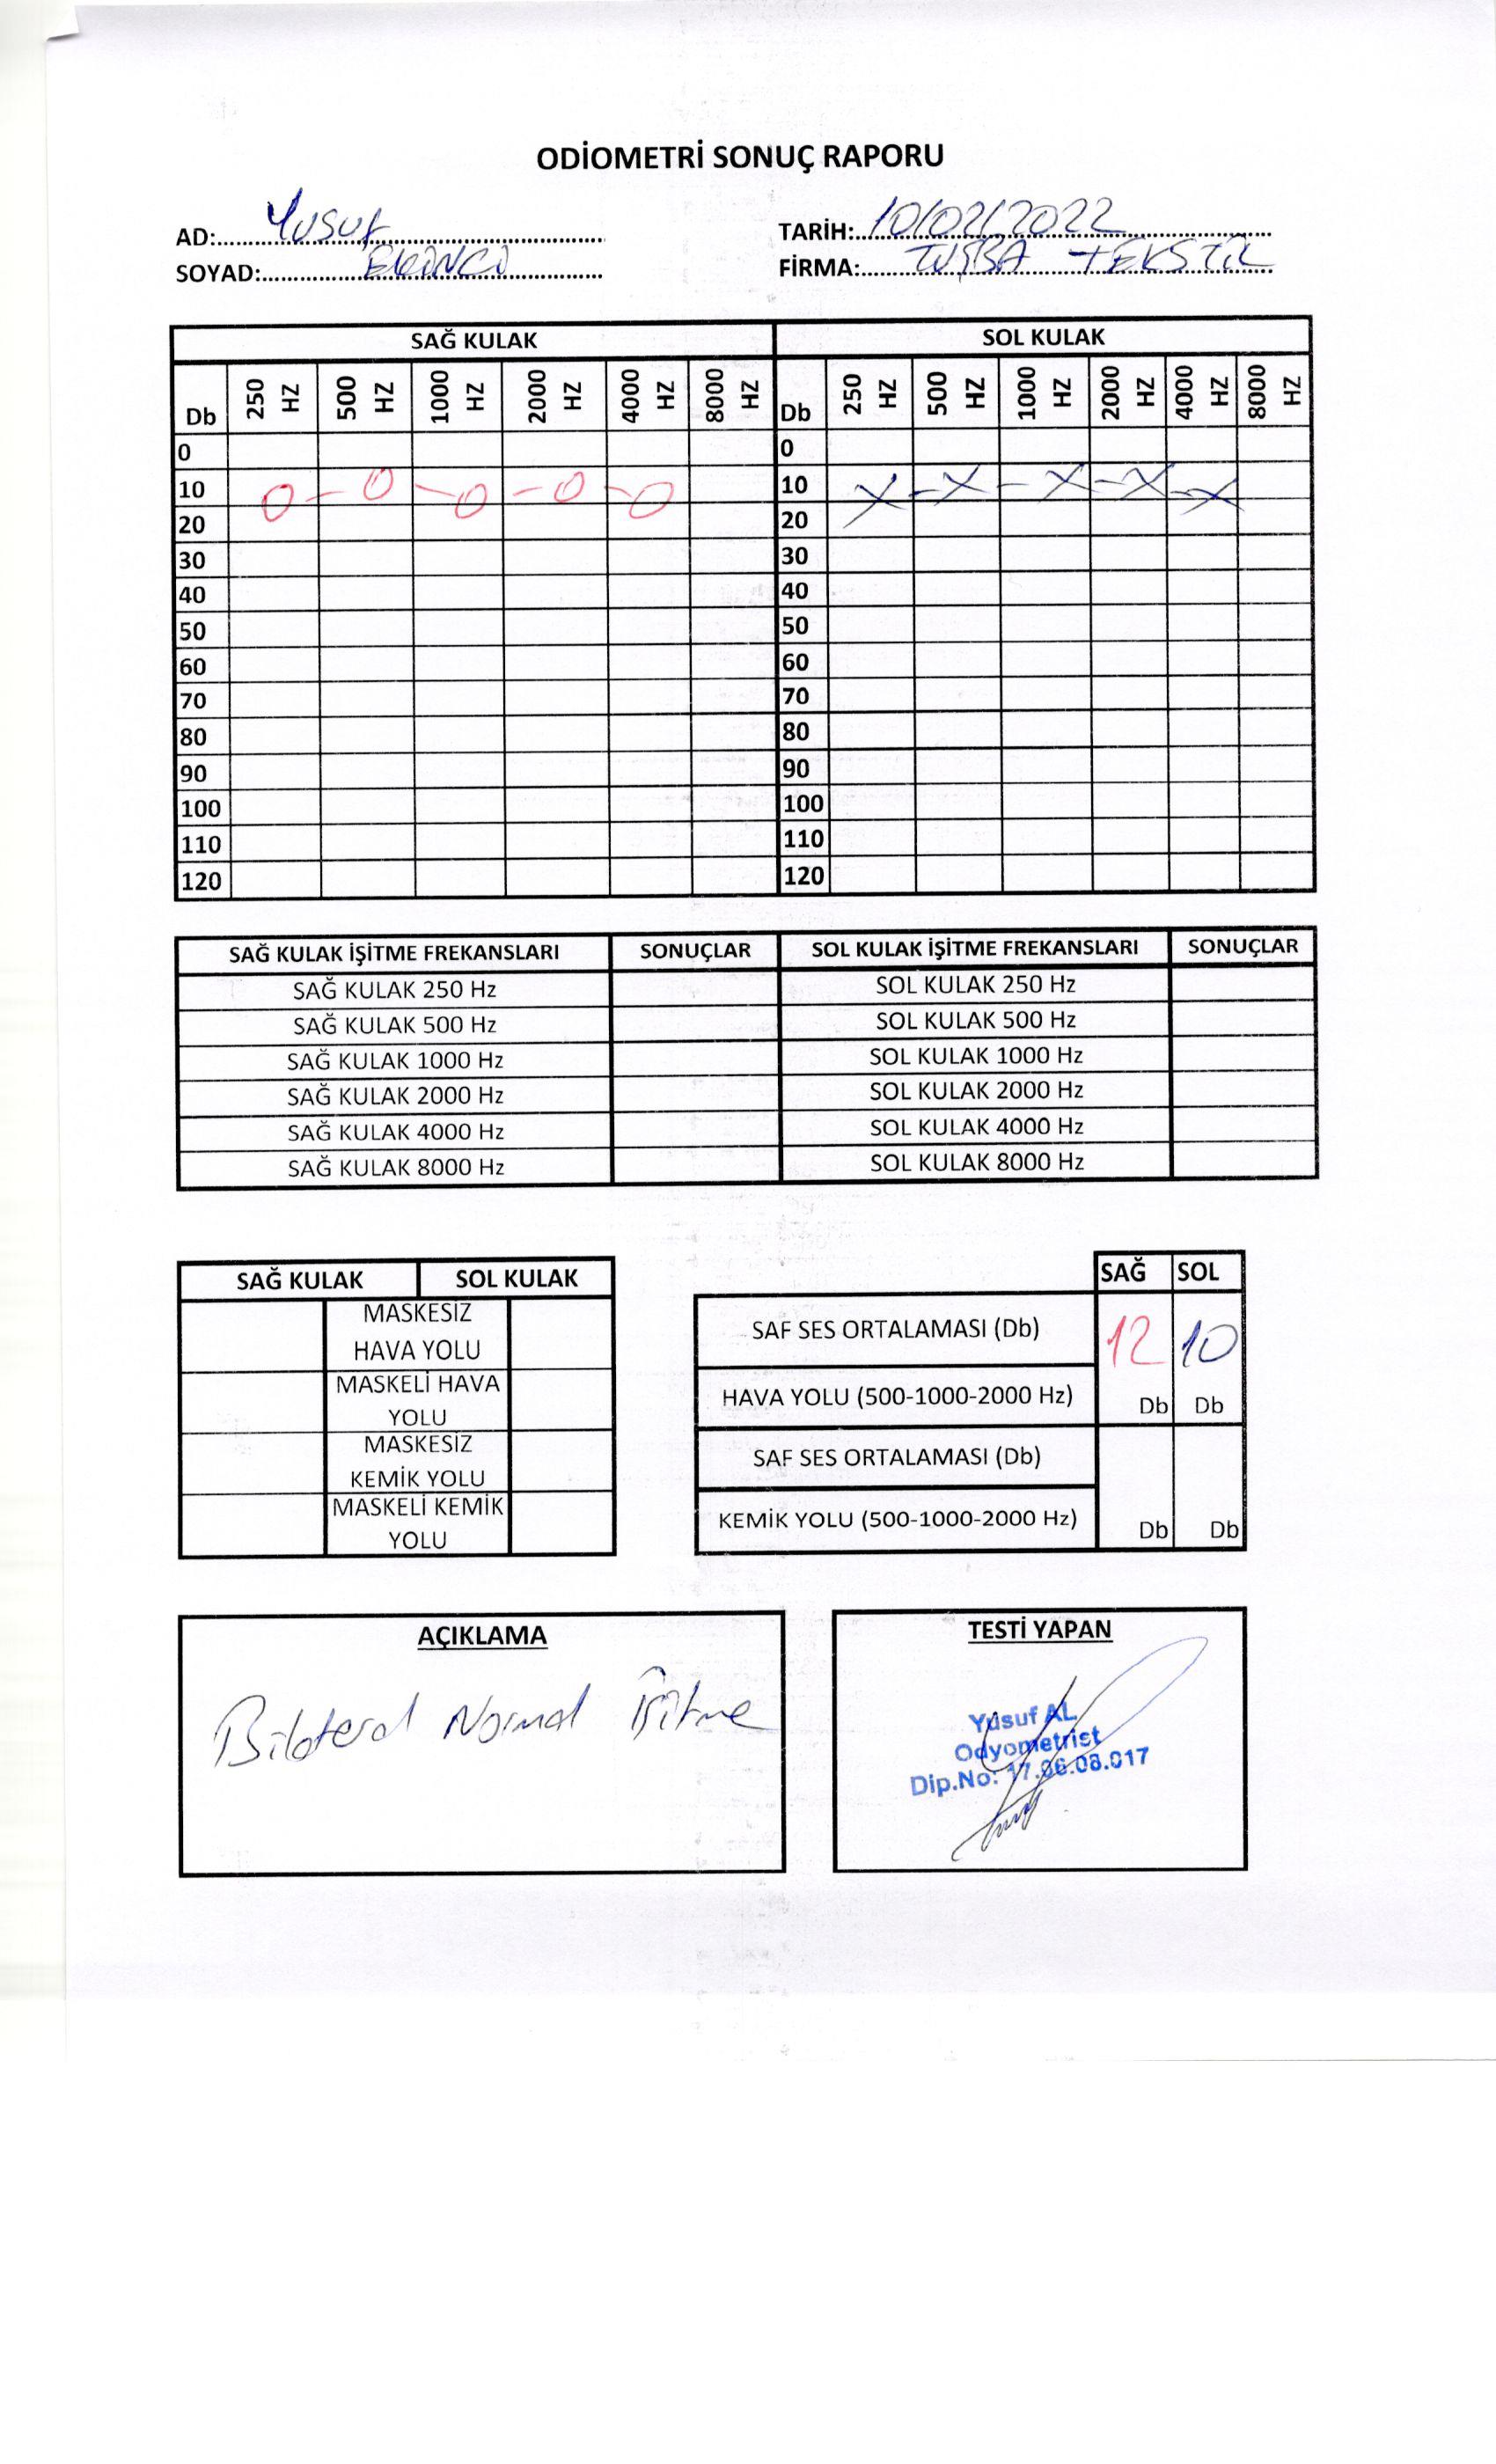 ODİOMETRİ SONUÇ RAPORU
AD: Yusuf
TARİH: 10/02/2022
SOYAD: EKİNCİ
FİRMA: TUŞBA TEKSTİL
SAĞ KULAK SOL KULAK
Db 250 HZ 500 HZ 1000 HZ 2000 HZ 4000 HZ 8000 HZ Db 250 HZ 500 HZ 1000 HZ 2000 HZ 4000 HZ 8000 HZ
0 0
10 10
20 20
30 30
40 40
50 50
60 60
70 70
80 80
90 90
100 100
110 110
120 120
SAĞ KULAK İŞİTME FREKANSLARI SONUÇLAR SOL KULAK İŞİTME FREKANSLARI SONUÇLAR
SAĞ KULAK 250 Hz SOL KULAK 250 Hz
SAĞ KULAK 500 Hz SOL KULAK 500 Hz
SAĞ KULAK 1000 Hz SOL KULAK 1000 Hz
SAĞ KULAK 2000 Hz SOL KULAK 2000 Hz
SAĞ KULAK 4000 Hz SOL KULAK 4000 Hz
SAĞ KULAK 8000 Hz SOL KULAK 8000 Hz
SAĞ KULAK SOL KULAK
MASKESİZ
HAVA YOLU
MASKELİ HAVA
YOLU
MASKESİZ
KEMİK YOLU
MASKELİ KEMİK
YOLU
SAĞ SOL
SAF SES ORTALAMASI (Db) 12 10
HAVA YOLU (500-1000-2000 Hz) Db Db
SAF SES ORTALAMASI (Db)
KEMİK YOLU (500-1000-2000 Hz) Db Db
AÇIKLAMA
Bilateral Normal İşitme
TESTİ YAPAN
Yusuf AL
Odyometrist
Dip.No: 17.06.08.017